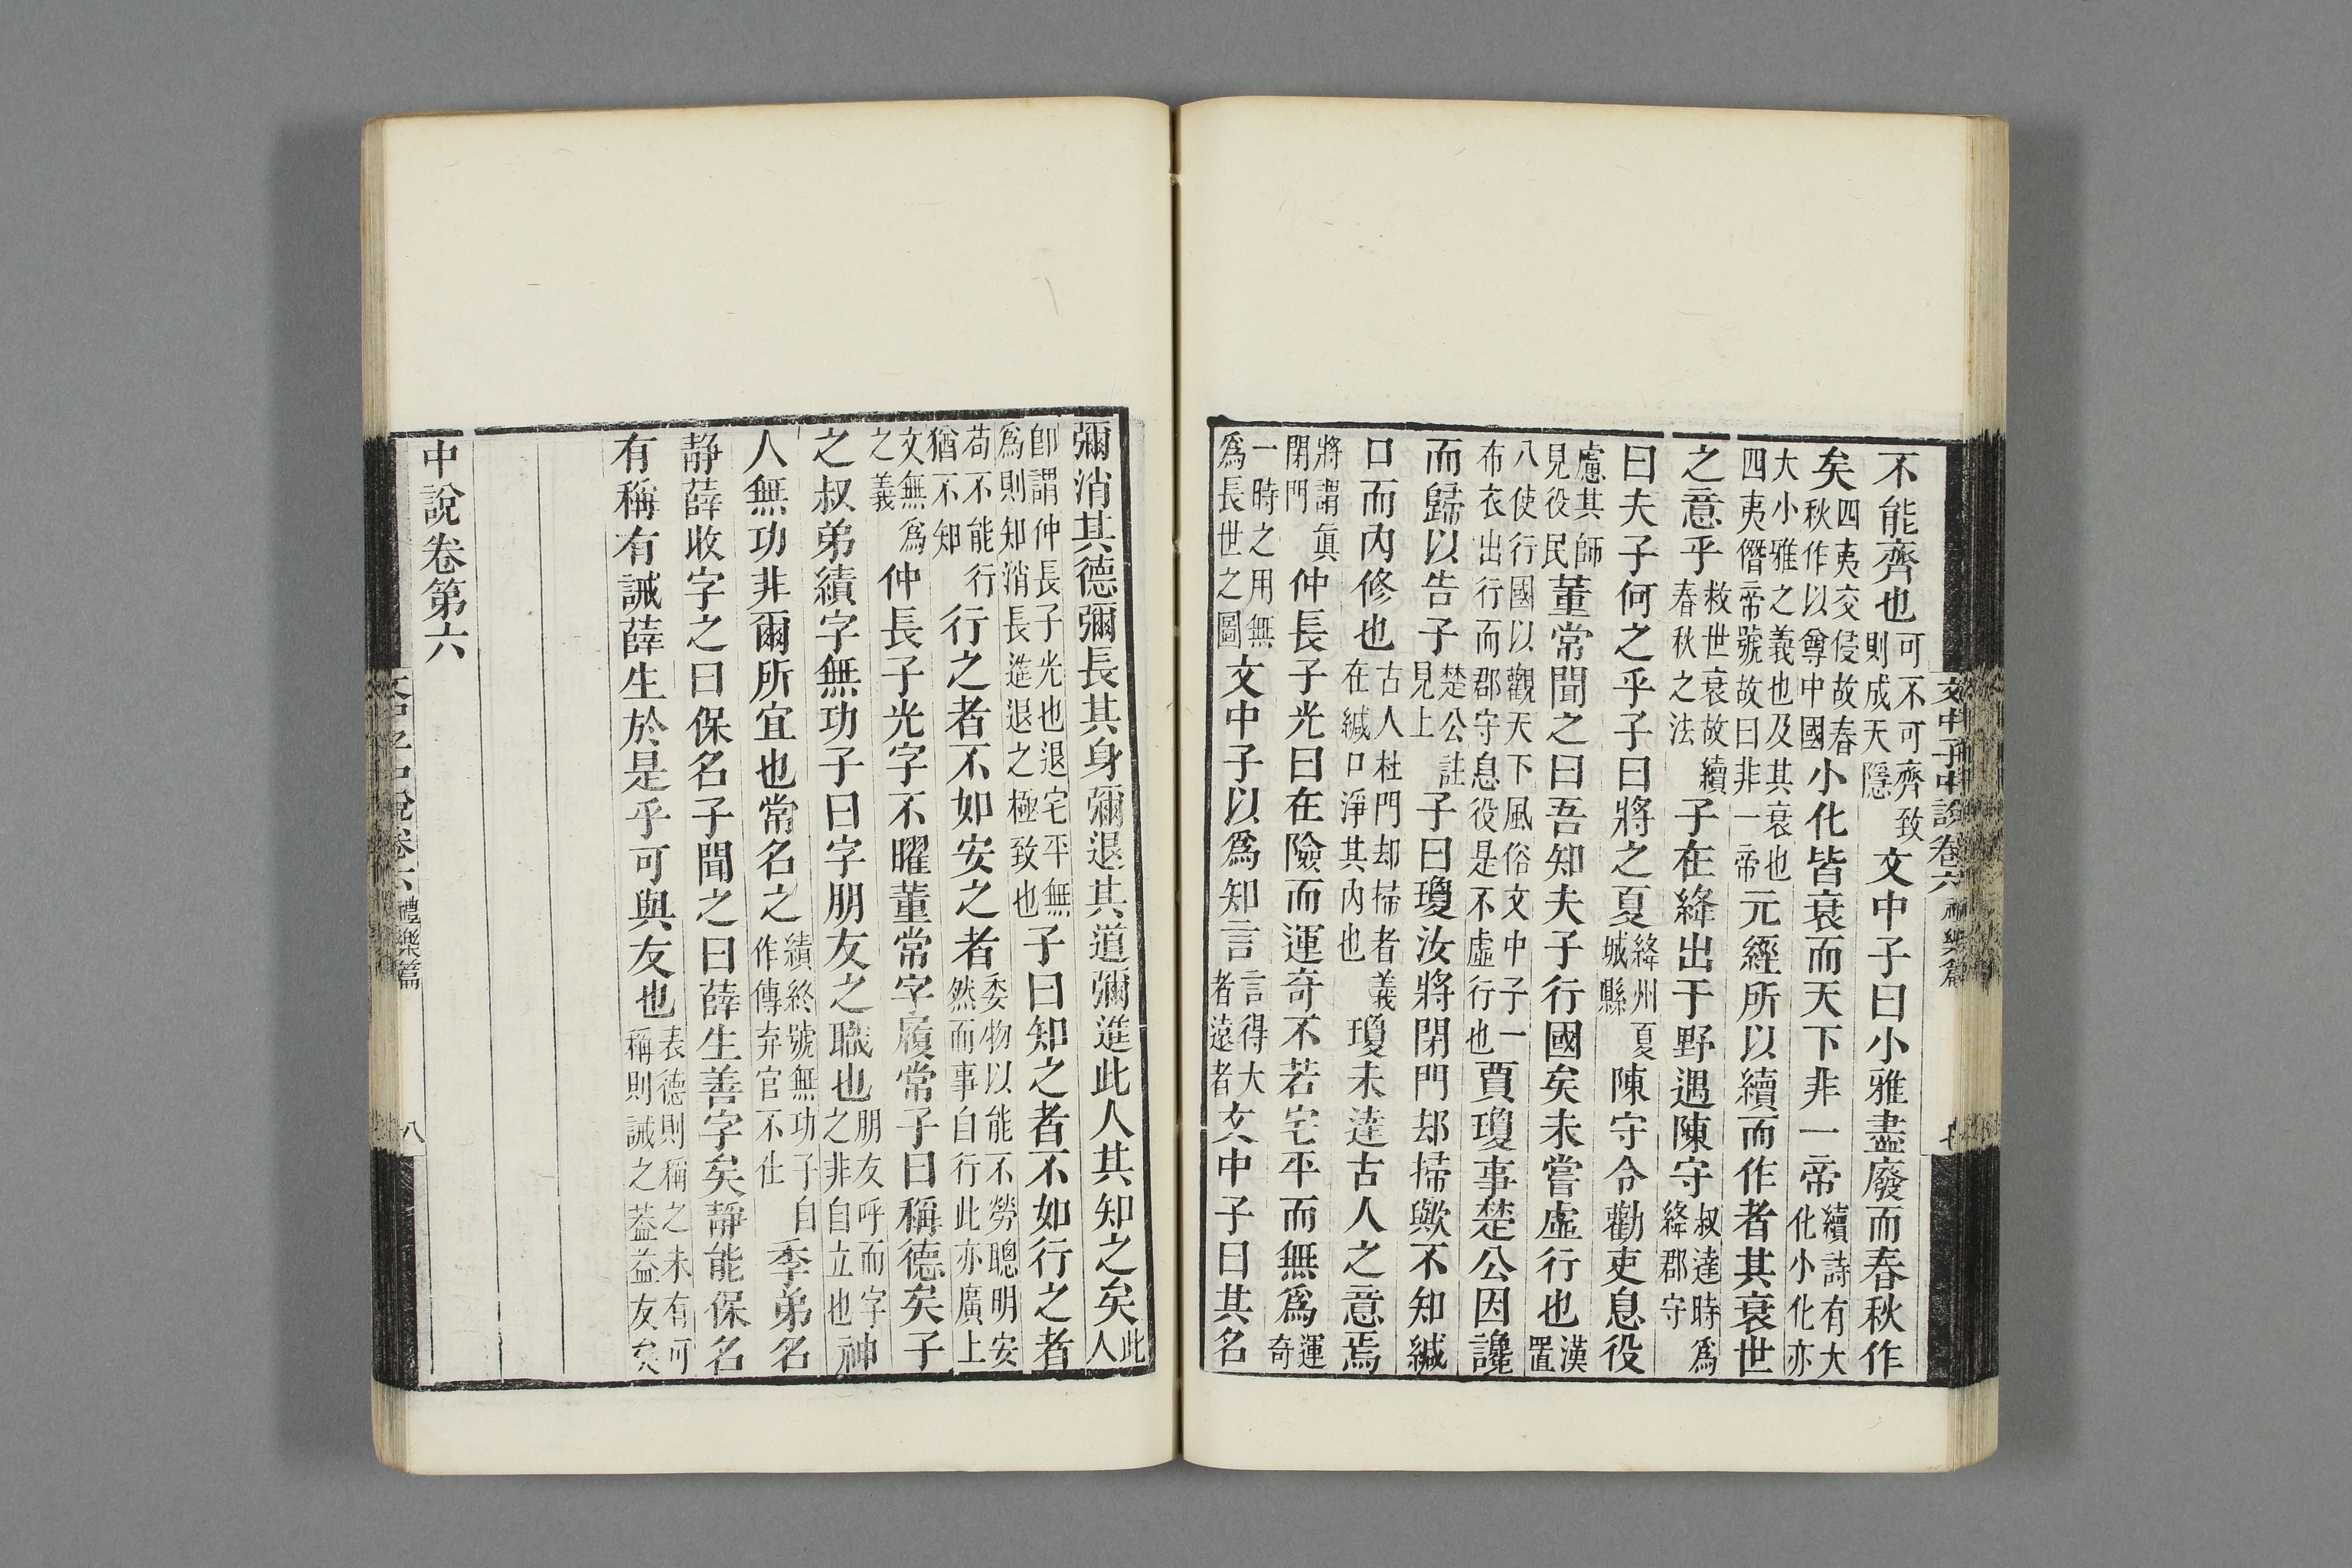 文中子中說卷六
不能齊也可不可齊致則成天隱文中子曰小雅盡廢而春秋作
矣四夷交侵故春秋作以尊中國小化皆衰而天下非一帝續詩有大化小化亦
大小雅之義也及其衰也四夷僭帝號故曰非一帝元經所以續而作者其衰世
之意乎救世衰故續春秋之法子在絳出于野遇陳守叔達時爲絳郡守
曰夫子何之乎子曰將之夏絳州夏城縣陳守令勸吏息役
慮其師見役民董常聞之曰吾知夫子行國矣未嘗虛行也漢置
八使行國以觀天下風俗文中子一布衣出行而郡守息役是不虛行也賈瓊事楚公因讒
而歸以告子楚公註見上子曰瓊汝將閉門却掃歟不知緘
口而內修也古人杜門却掃者義在緘口淨其內也瓊未達古人之意焉
將謂眞閉門仲長子光曰在險而運奇不若宅平而無爲運奇
一時之用無爲長世之圖文中子以爲知言言得大者遠者文中子曰其名
彌消其德彌長其身彌退其道彌進此人其知之矣此人
卽謂仲長子光也退宅平無爲則知消長進退之極致也子曰知之者不如行之者
苟不能行猶不知行之者不如安之者委物以能不勞聰明安然而事自行此亦廣上
文無爲之義仲長子光字不曜董常字履常子曰稱德矣子
之叔弟績字無功子曰字朋友之職也朋友呼而字之非自自立也神
人無功非爾所宜也常名之績終號無功子自作傳弃官不仕季弟名
靜薛收字之曰保名子聞之曰薛生善字矣靜能保名
有稱有誡薛生於是乎可與友也表德則稱之未有可稱則誡之葢益友矣
中說卷第六
文中子中說卷六 禮樂篇 八